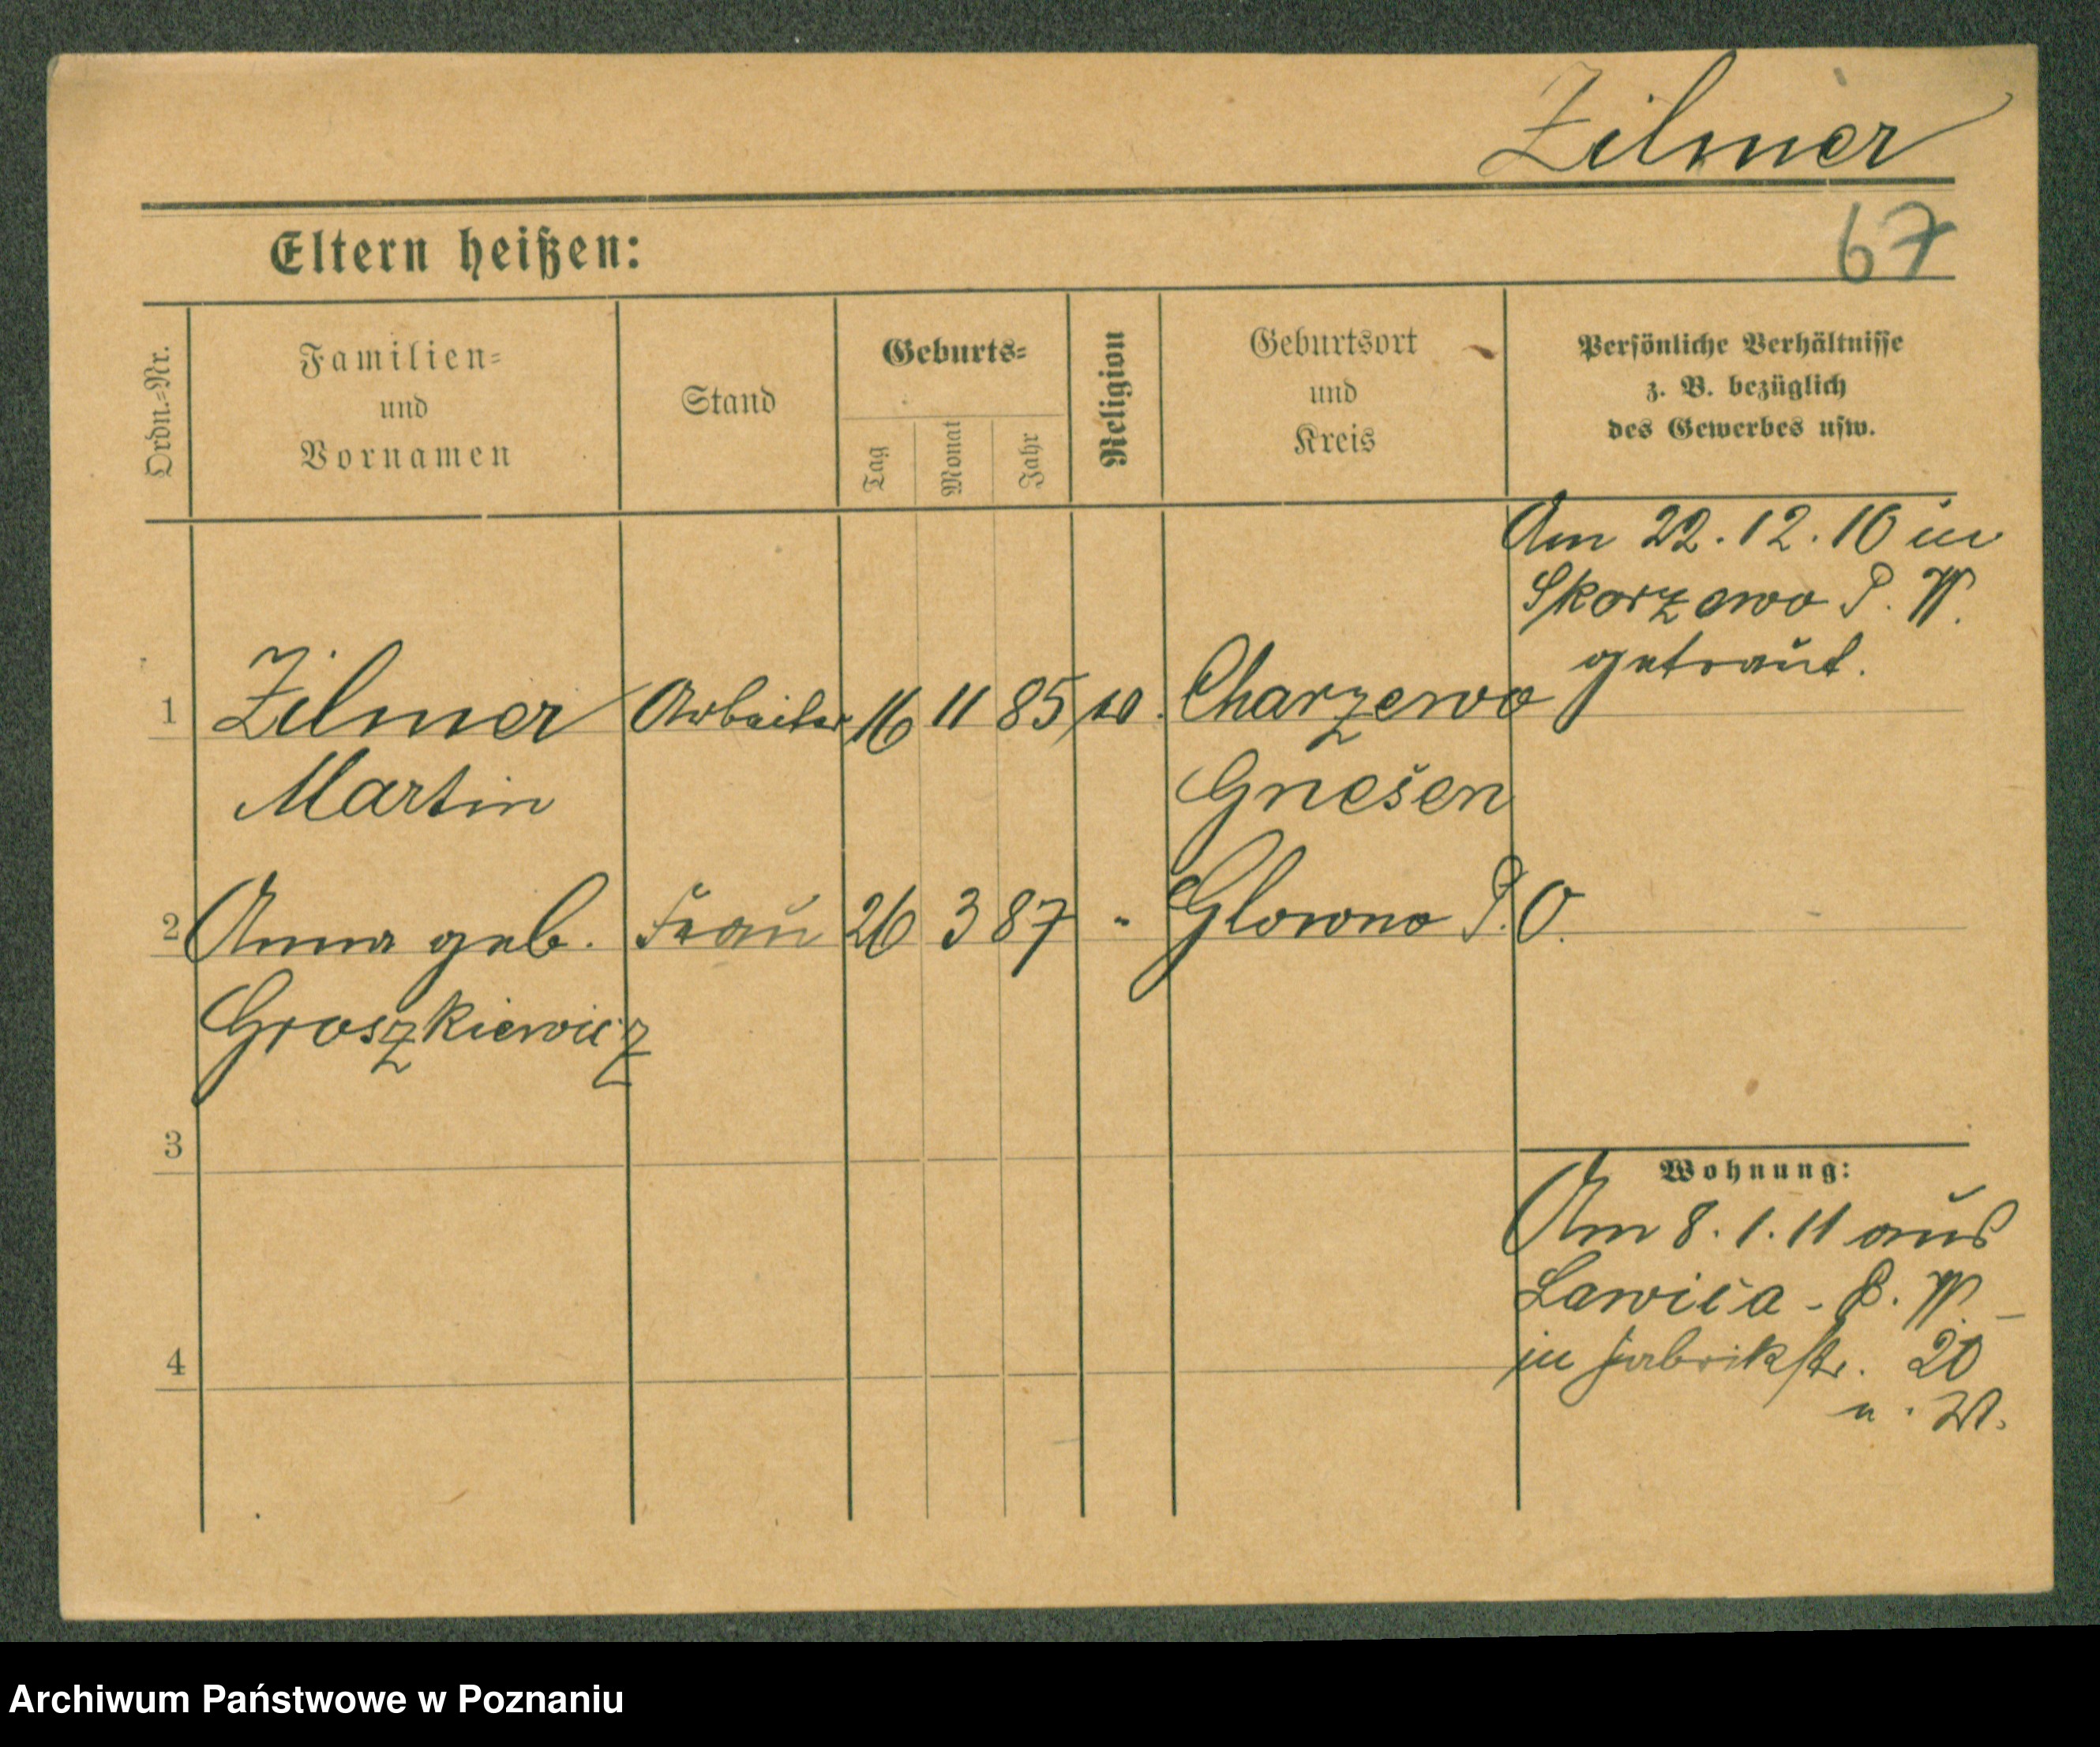 Zilmer
Eltern heißen:
67
Ordn.=Nr.
Familien=
und
Vornamen
Stand
Geburts=
Tag
Monat
Jahr
Religion
Geburtsort
und
Kreis
Persönliche Verhältnisse
z. B. bezüglich
des Gewerbes usw.
Am 22.12.10 in
Skorzewo P. W.
getraut.
1 Zilmer Arbeiter 16 11 85 Charzewo
Martin Gnesen
2 Anna geb. Frau 26 3 87 " Glowno P. O.
Groszkiewicz
3
Wohnung:
Am 8.1.11 aus
Lawica - P. W. -
in Fabrikstr. 20
4